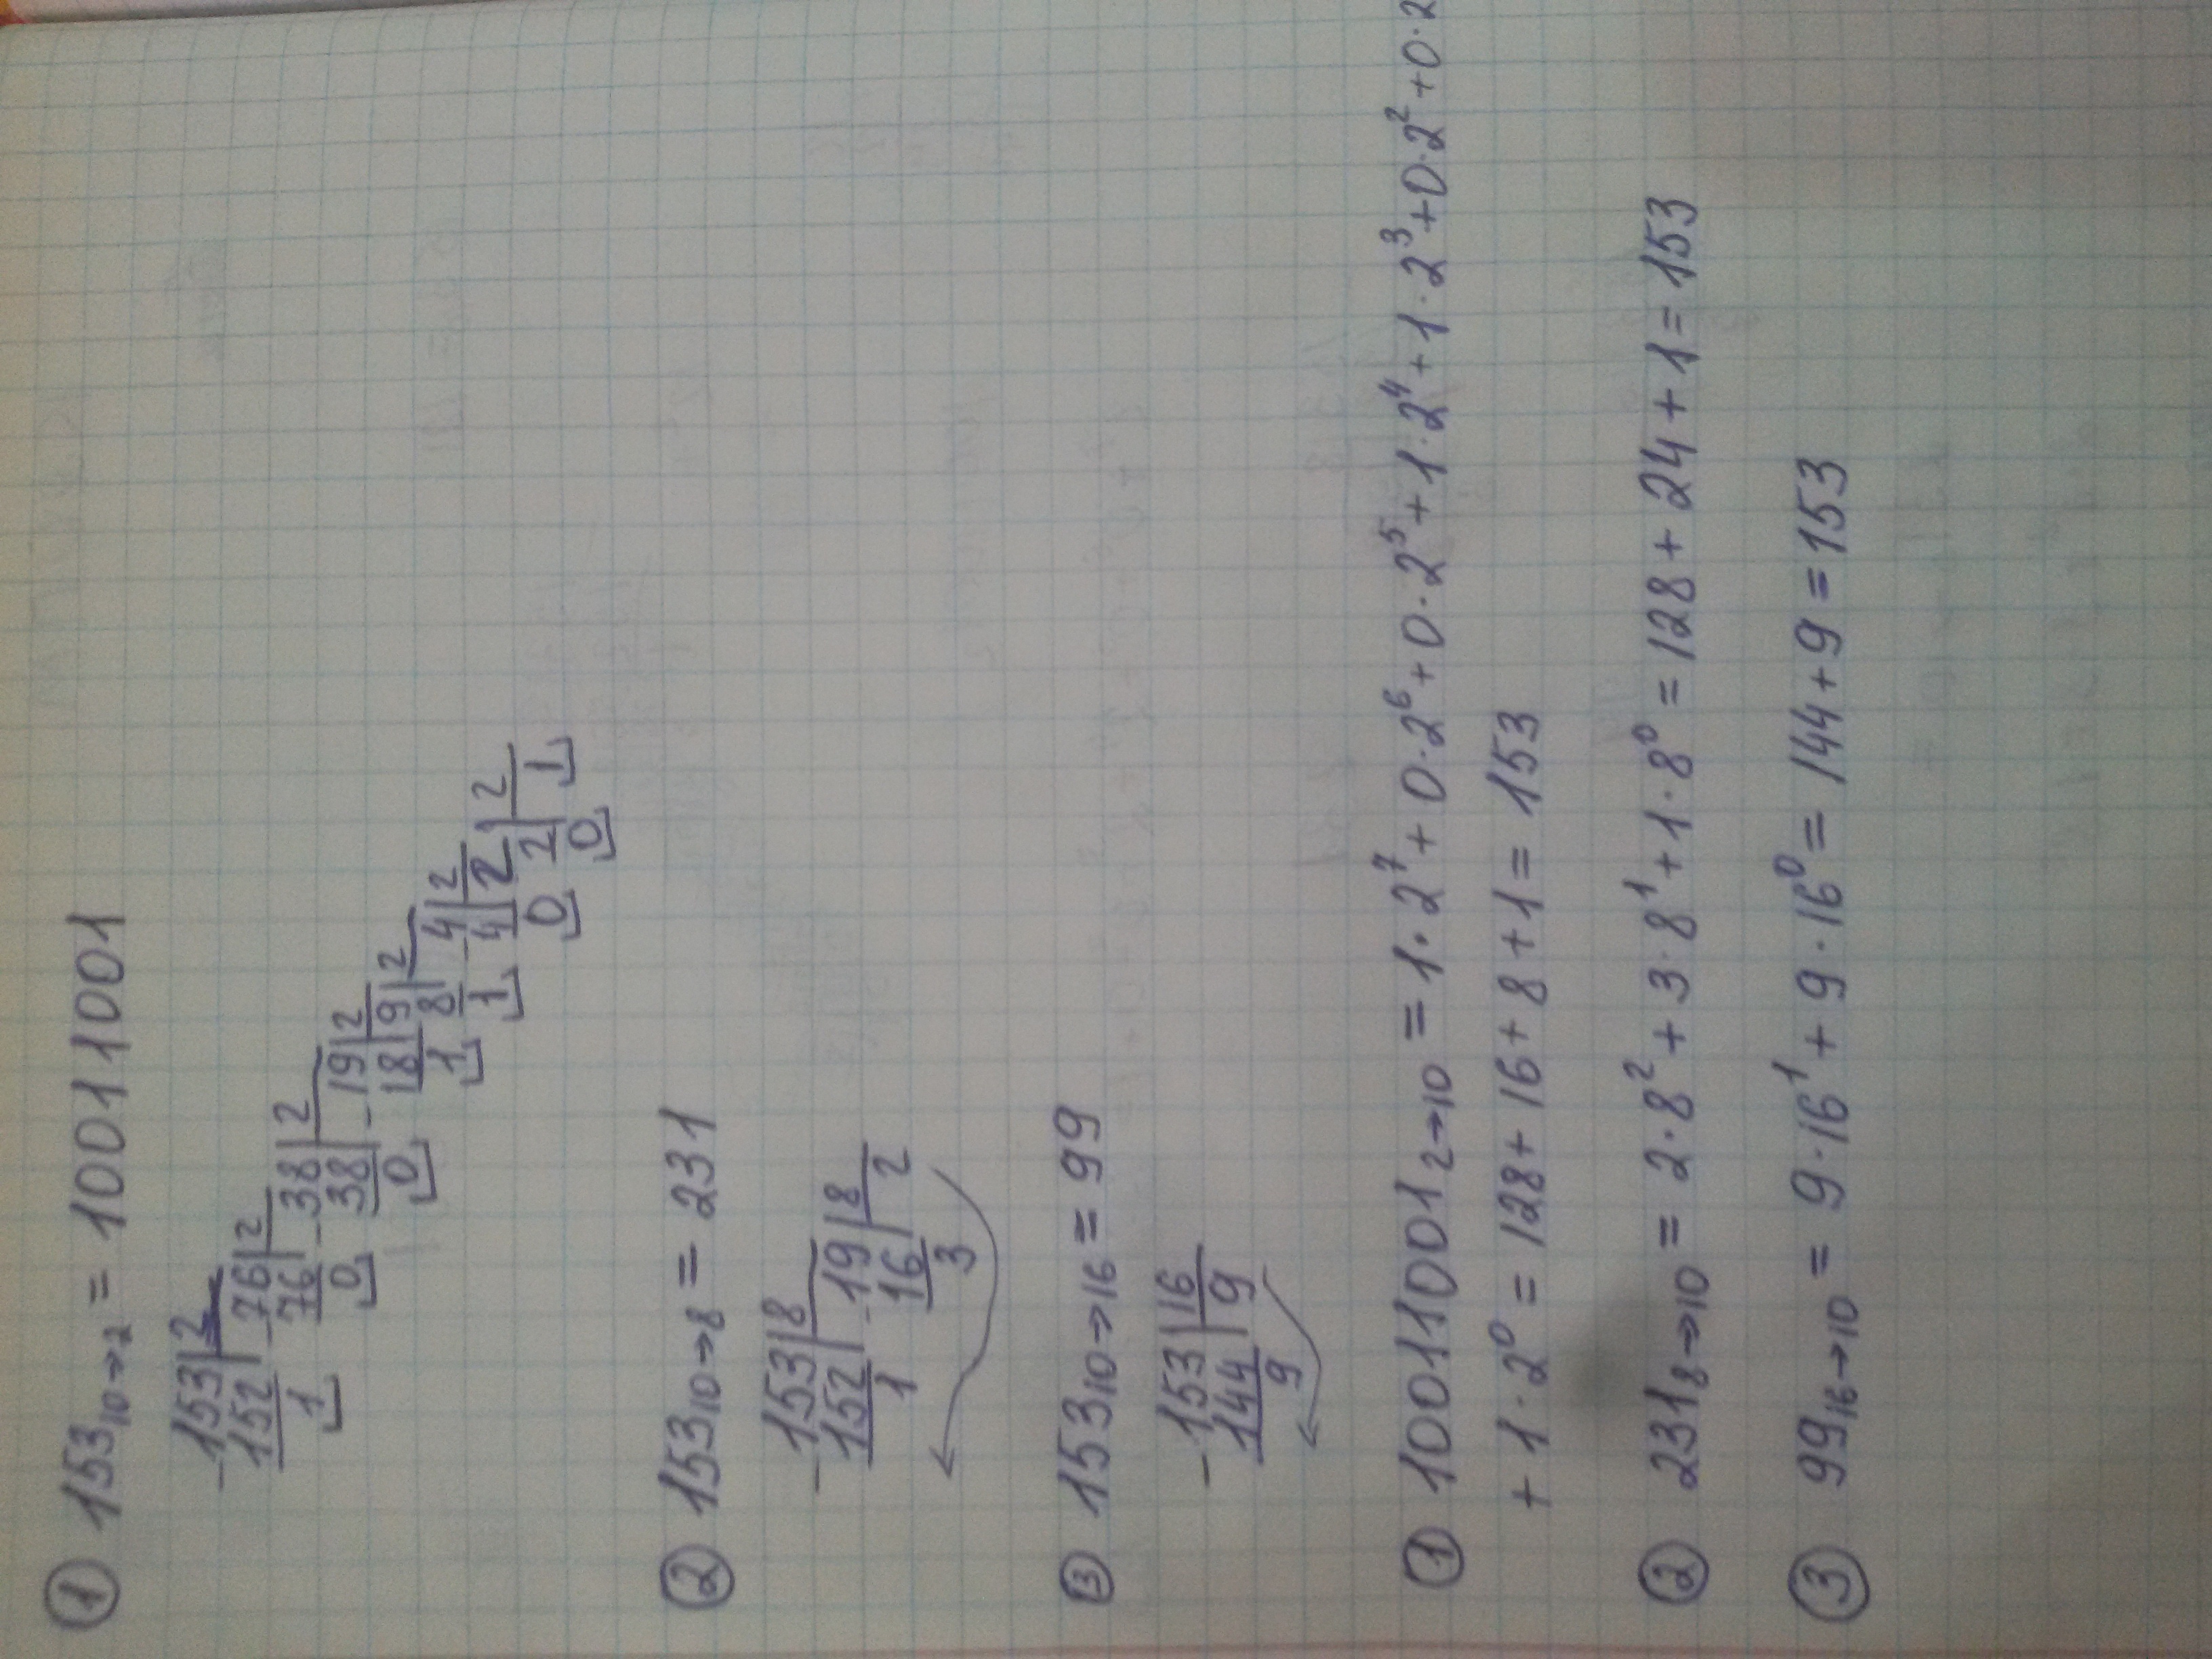 ① 153₁₀→₂ = 10011001
-153|2
152|-76|2
1 76|-38|2
0 38|-19|2
0 18|9|2
1 8|-4|2
1 4|2|2
0 2|1
0
② 153₁₀→₈ = 231
-153|8
152|-19|8
1 16|2
3
③ 153₁₀→₁₆ = 99
-153|16
144|9
9
① 10011001₂→₁₀ = 1·2⁷+0·2⁶+0·2⁵+1·2⁴+1·2³+0·2²+0·2
+1·2⁰ = 128+16+8+1 = 153
② 231₈→₁₀ = 2·8²+3·8¹+1·8⁰ = 128+24+1 = 153
③ 99₁₆→₁₀ = 9·16¹+9·16⁰ = 144+9 = 153